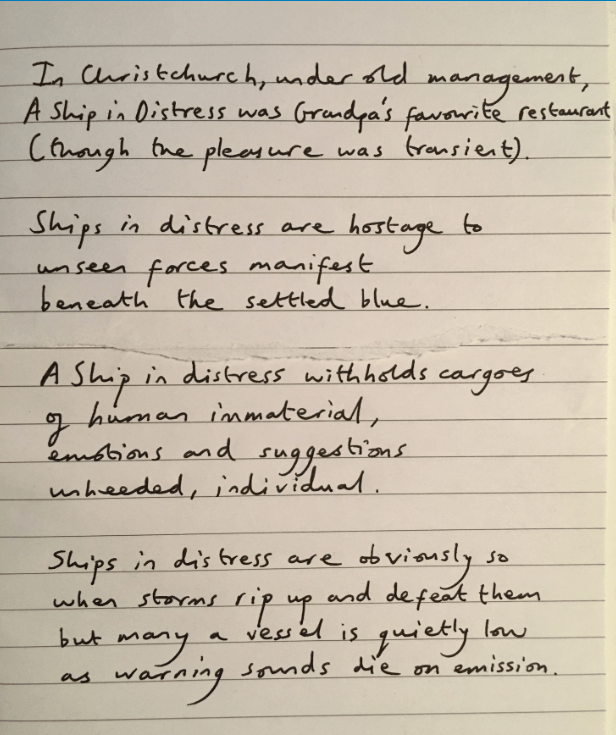 In Christchurch, under old management,
A Ship in Distress was Grandpa's favourite restaurant
(though the pleasure was transient).
Ships in distress are hostage to
unseen forces manifest
beneath the settled blue.
A Ship in distress withholds cargoes
of human immaterial,
emotions and suggestions
unheeded, individual.
Ships in distress are obviously so
when storms rip up and defeat them
but many a vessel is quietly low
as warning sounds die on emission.